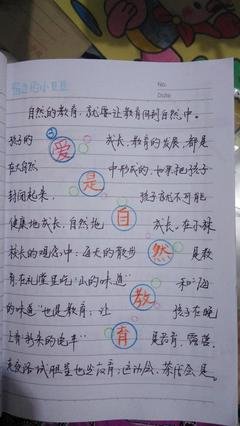 自然的教育,就要让教育回到自然中。
孩子的 爱 成长,教育的发展,都是
在大自然 是 中形成的,如果把孩子
封闭起来, 自 孩子就不可能
健康地成长,自然地 成长。在小林
校长的观念中:每天的散步 然 是教
育,在礼堂里吃“山的味道” 和“海
的味道”也是教育;让 教 孩子在晚
上看 的电车” 育 是教育,露营,
试胆量也是教育;运动会,茶代会是。
No:
Date: